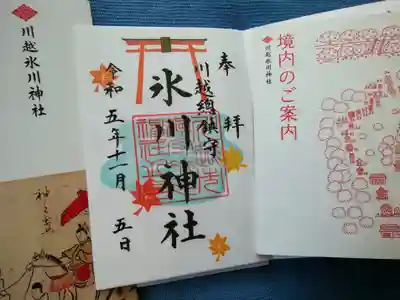 川越氷川神社
神々に
奉拝
川越總鎮守
氷川神社
令和五年十一月五日
境内のご案内
川越氷川神社